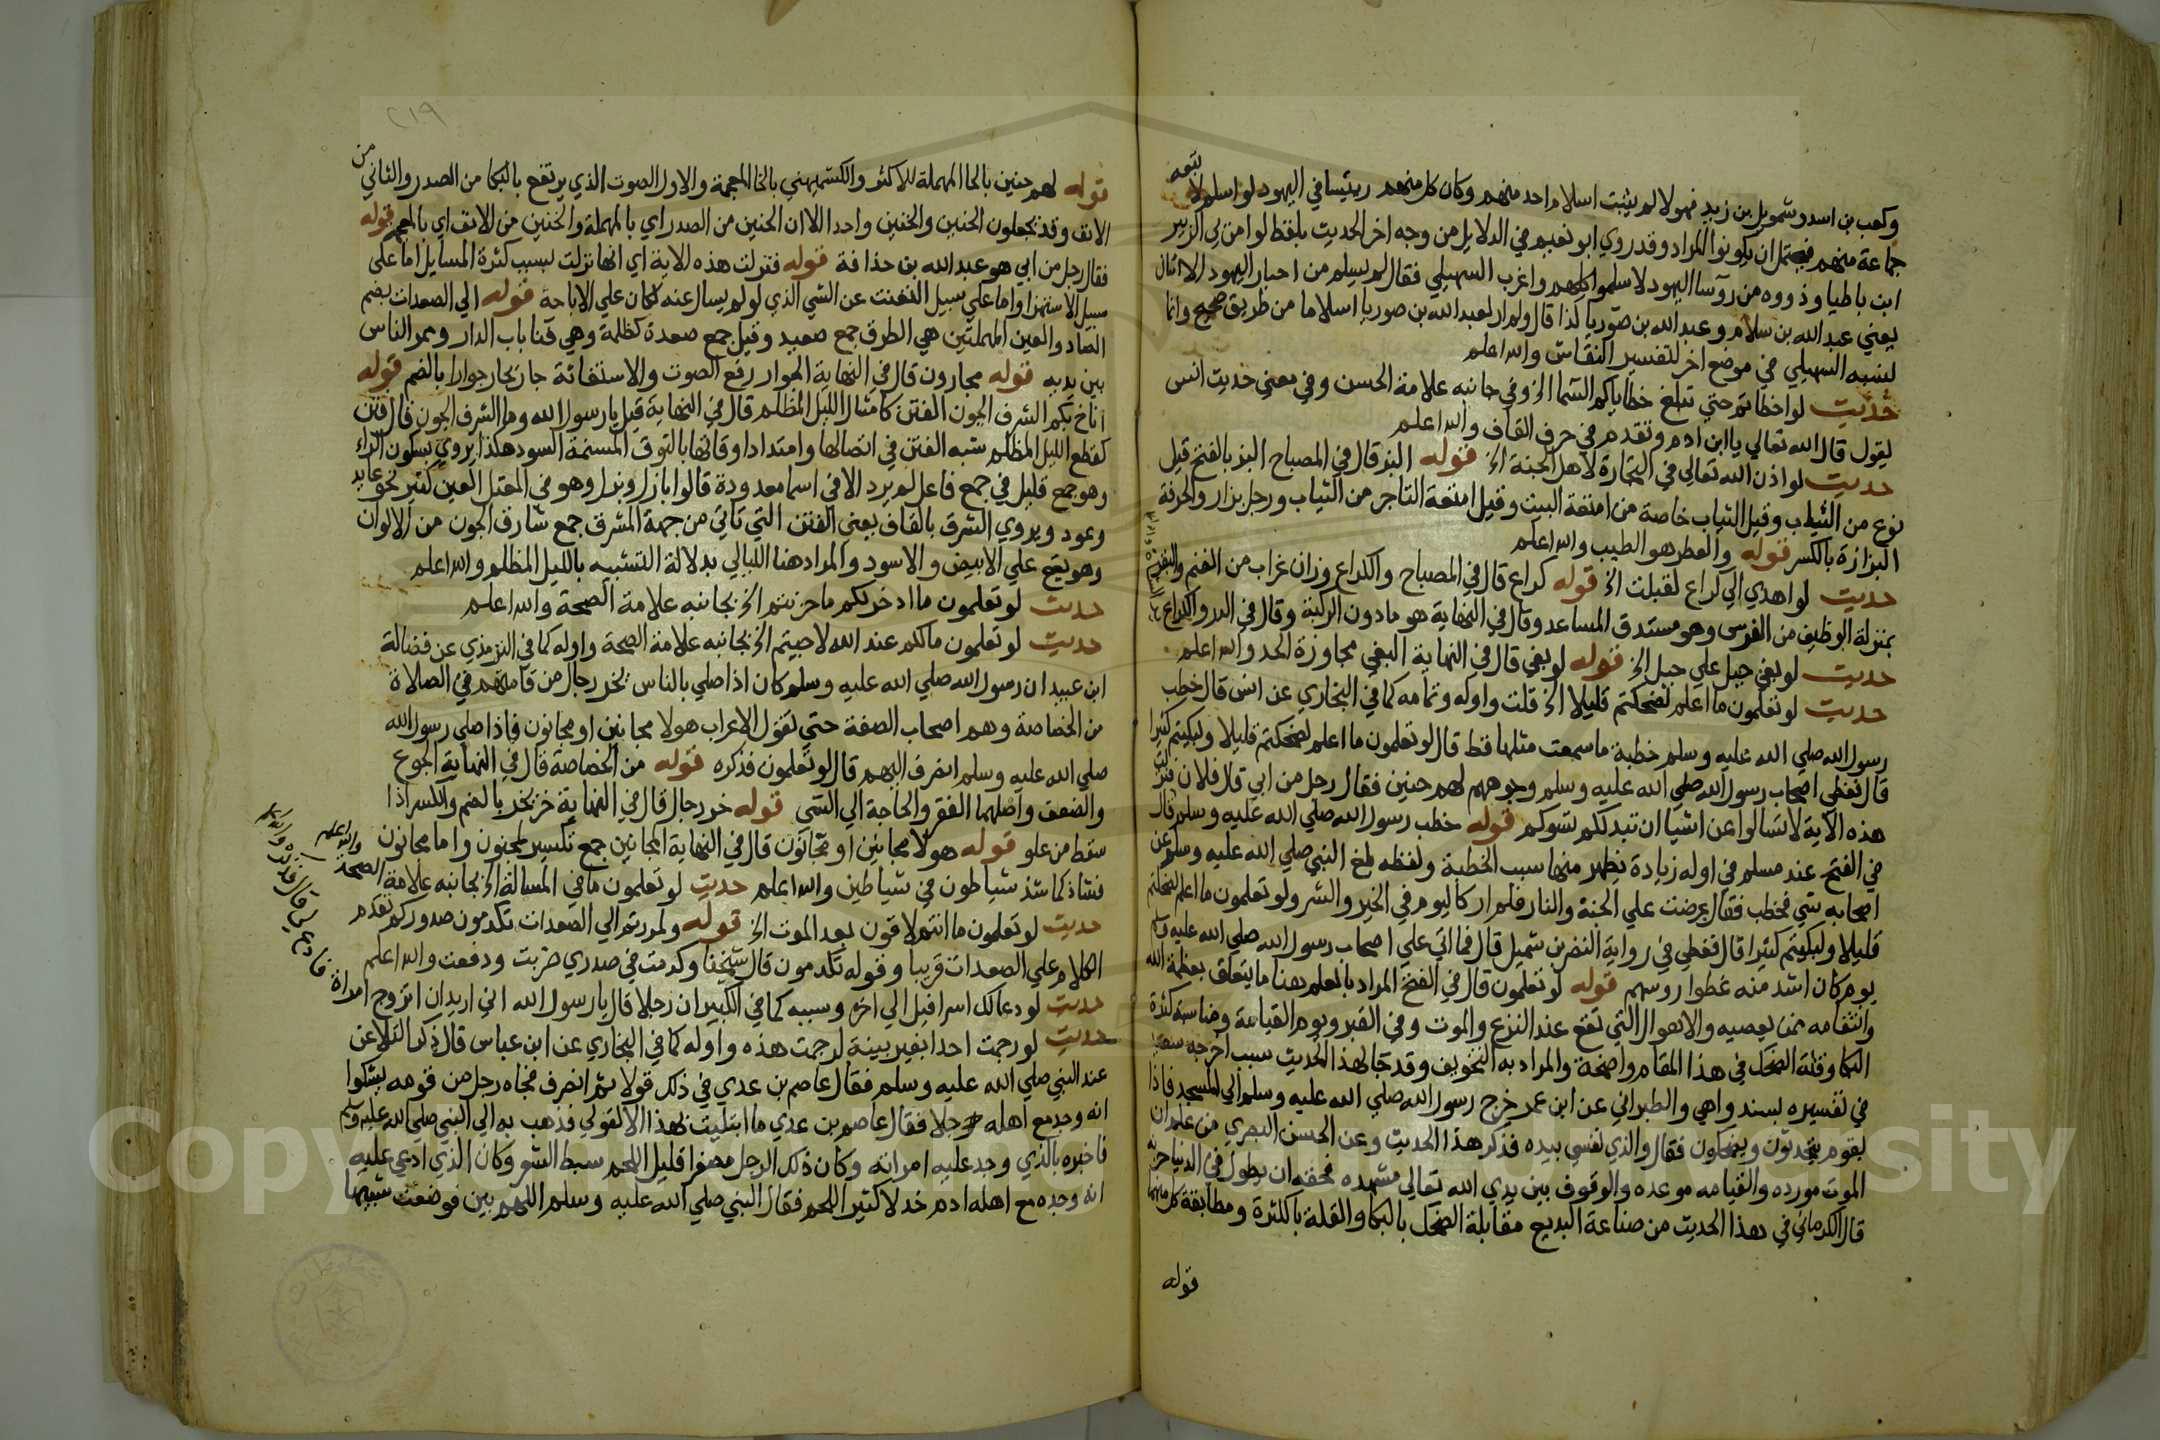 وكعب بن اسد وشمويل بن زيد فهولا لم يثبت اسلام احد منهم وكان كل منهم رييسا في اليهود لو اسلم لاتبعه
جماعة منهم فيحتمل ان يكونوا المراد وقد روي ابو نعيم في الدلايل من وجه اخر الحديث بلفظ لو امن بي الزبير
ابن باطيا وذووه من روسا اليهود لاسلموا كلهم واغرب السهيلي فقال لم يسلم من احبار اليهود الا اثنان
يعني عبد الله بن سلام وعبد الله بن صوريا كذا قال ولم ار لعبد الله بن صوريا اسلاما من طريق صحيح وانما
لنسبه السهيلي في موضع اخر لتفسير النقاش والله اعلم
حديث لو اخطاتم حتي تبلغ خطاياكم السما الخ وفي جانبه علامة الحسن وفي معني حديث انس
ليقول قال الله تعالي يا ابن ادم وتقدم في حرف القاف والله اعلم
حديث لو اذن الله تعالي في التجارة لاهل الجنة الخ قوله البز قال في المصباح البز بالفتح قيل
نوع من الثياب وقيل الثياب خاصة من امتعة البيت وقيل امتعة التاجر من الثياب ورجل بزار والحرفة
البزازة بالكسر قوله والعطر هو الطيب والله اعلم
حديث لو اهدي الي كراع لقبلت الخ قوله كراع قال في المصباح والكراع وزان غراب من الغنم والبقر
بمنزلة الوظيف من الفرس وهو مستدق الساعد وقال في النهاية هو ما دون الركبة وقال في الدر والكراع
حديث لو بغي جبل علي جبل الخ قوله لو بغي قال في النهاية البغي مجاوزة الحد والله اعلم
حديث لو تعلمون ما اعلم لضحكتم قليلا الخ قلت واوله وتمامه كما في البخاري عن انس قال خطب
رسول الله صلي الله عليه وسلم خطبة ما سمعت مثلها قط قال لو تعلمون ما اعلم لضحكتم قليلا ولبكيتم كثيرا
قال فغطي اصحاب رسول الله صلي الله عليه وسلم وجوههم لهم حنين فقال رجل من ابي قال فلان فنزلت
هذه الاية لا تسالوا عن اشيا ان تبد لكم تسوكم قوله خطب رسول الله صلي الله عليه وسلم قال
في الفتح عند مسلم في اوله زيادة يظهر منها سبب الخطبة ولفظه بلغ النبي صلي الله عليه وسلم عن
اصحابه شي فخطب فقال عرضت علي الجنة والنار فلم ار كاليوم في الخير والشر ولو تعلمون ما اعلم لضحكتم
قليلا ولبكيتم كثيرا قال فغطي في رواية النضر بن شميل قال فما اتي علي اصحاب رسول الله صلي الله عليه وسلم
يوم كان اشد منه غطوا روسهم قوله لو تعلمون قال في الفتح المراد بالعلم هنا ما يتعلق بعظمة الله
وانتقامه ممن يعصيه والاهوال التي تقع عند النزع والموت وفي القبر ويوم القيامة ومناسبة كثرة
البكا وقلة الضحك في هذا المقام واضحة والمراد به التخويف وقد جا لهذا الحديث سبب اخرجه سعيد
في تفسيره بسند واهي والطبراني عن ابن عمر خرج رسول الله صلي الله عليه وسلم الي المسجد فاذا
بقوم يتحدثون ويضحكون فقال والذي نفسي بيده فذكر هذا الحديث وعن الحسن البصري من علم ان
الموت مورده والقيامه موعده والوقوف بين يدي الله تعالي مشهده فحقه ان يطول في الدنيا حزنه
قال الكرماني في هذا الحديث من صناعة البديع مقابلة الضحك بالبكا والقلة بالكثرة ومطابقة كل منهما
قوله
٢١٩
قوله لهم حنين بالحا المهملة للاكثر والكشميهني بالخا المعجمة والاول الصوت الذي يرتفع بالبكا من الصدر والثاني من
الانف وقد يجعلون الحنين والخنين واحدا الا ان الحنين من الصدر اي بالمهملة والخنين من الانف اي بالمعجم قوله
فقال رجل من ابي هو عبد الله بن حذافة قوله فنزلت هذه الاية اي انها نزلت بسبب كثرة المسايل اما علي
سبيل الاستهزا واما علي سبيل التعنت عن الشي الذي لو لم يسال عنه لكان علي الاباحة قوله الي الصعدات بضم
الصاد والعين المهملتين هي الطرق جمع صعيد وقيل جمع صعدة كظلمة وهي فنا باب الدار وممر الناس
بين يديه قوله تجارون قال في النهاية الجوار رفع الصوت والاستغاثة جار يجار جوارا بالضم قوله
اناخ بكم الشرف الجون الفتن كامثال الليل المظلم قال في النهاية قيل يا رسول الله وما الشرف الجون قال فتن
كقطع الليل المظلم شبه الفتن في اتصالها وامتداد اوقاتها بالنوق المسنمة السود هكذا يروي بسكون الراء
وهو جمع قليل في جمع فاعل لم يرد الا في اسما معدودة قالوا بازل وبزل وهو في المعتل العين كثير نحو عايد
وعود ويروي الشرق بالقاف يعني الفتن التي تاتي من جهة المشرق جمع شارق الجون من الالوان
وهو يقع علي الابيض والاسود والمراد هنا الليالي بدلالة التشبيه بالليل المظلم والله اعلم
حديث لو تعلمون ما ادخر لكم ما حزنتم الخ بجانبه علامة الصحة والله اعلم
حديث لو تعلمون ما لكم عند الله لاحببتم الخ بجانبه علامة الصحة واوله كما في الترمذي عن فضالة
ابن عبيد ان رسول الله صلي الله عليه وسلم كان اذا صلي بالناس يخر رجال من قامتهم في الصلاة
من الخصاصة وهم اصحاب الصفة حتي تقول الاعراب هولا مجانين او مجانون فاذا صلي رسول الله
صلي الله عليه وسلم انصرف اليهم قال لو تعلمون فذكره قوله من الخصاصة قال في النهاية الجوع
والضعف واصلها الفقر والحاجة الي الشي قوله خر رجال قال في النهاية خر يخر بالضم والكسر اذا
سقط من علو قوله هولا مجانين او مجانون قال في النهاية المجانين جمع تكسير لمجنون واما مجانون
فشاذ كما شذ شياطون في شياطين والله اعلم حديث لو تعلمون ما في المسالة الخ بجانبه علامة الصحة والله اعلم
حديث لو تعلمون ما انتم لاقون بعد الموت الخ قوله ولمررتم الي الصعدات تكدمون صدوركم تقدم
الكلام علي الصعدات قريبا وقوله تكدمون قال شيخنا وكدمت في صدري ضربت ودفعت والله اعلم
حديث لو دعا لك اسرافيل الي اخره وسببه كما في الكبير ان رجلا قال يا رسول الله اني اريد ان اتزوج امراة
حديث لو رجمت احدا بغير بينة لرجمت هذه واوله كما في البخاري عن ابن عباس قال ذكر التلاعن
عند النبي صلي الله عليه وسلم فقال عاصم بن عدي في ذلك قولا ثم انصرف فجاه رجل من قومه يشكوا
انه وجد مع اهله رجلا فقال عاصم بن عدي ما ابتليت بهذا الا لقولي فذهب به الي النبي صلي الله عليه وسلم
فاخبره بالذي وجد عليه امراته وكان ذلك الرجل مصفرا قليل اللحم سبط الشعر وكان الذي ادعي عليه
انه وجده مع اهله ادم خدلا كثير اللحم فقال النبي صلي الله عليه وسلم اللهم بين فوضعت شبيها
Copyright © King Saud University